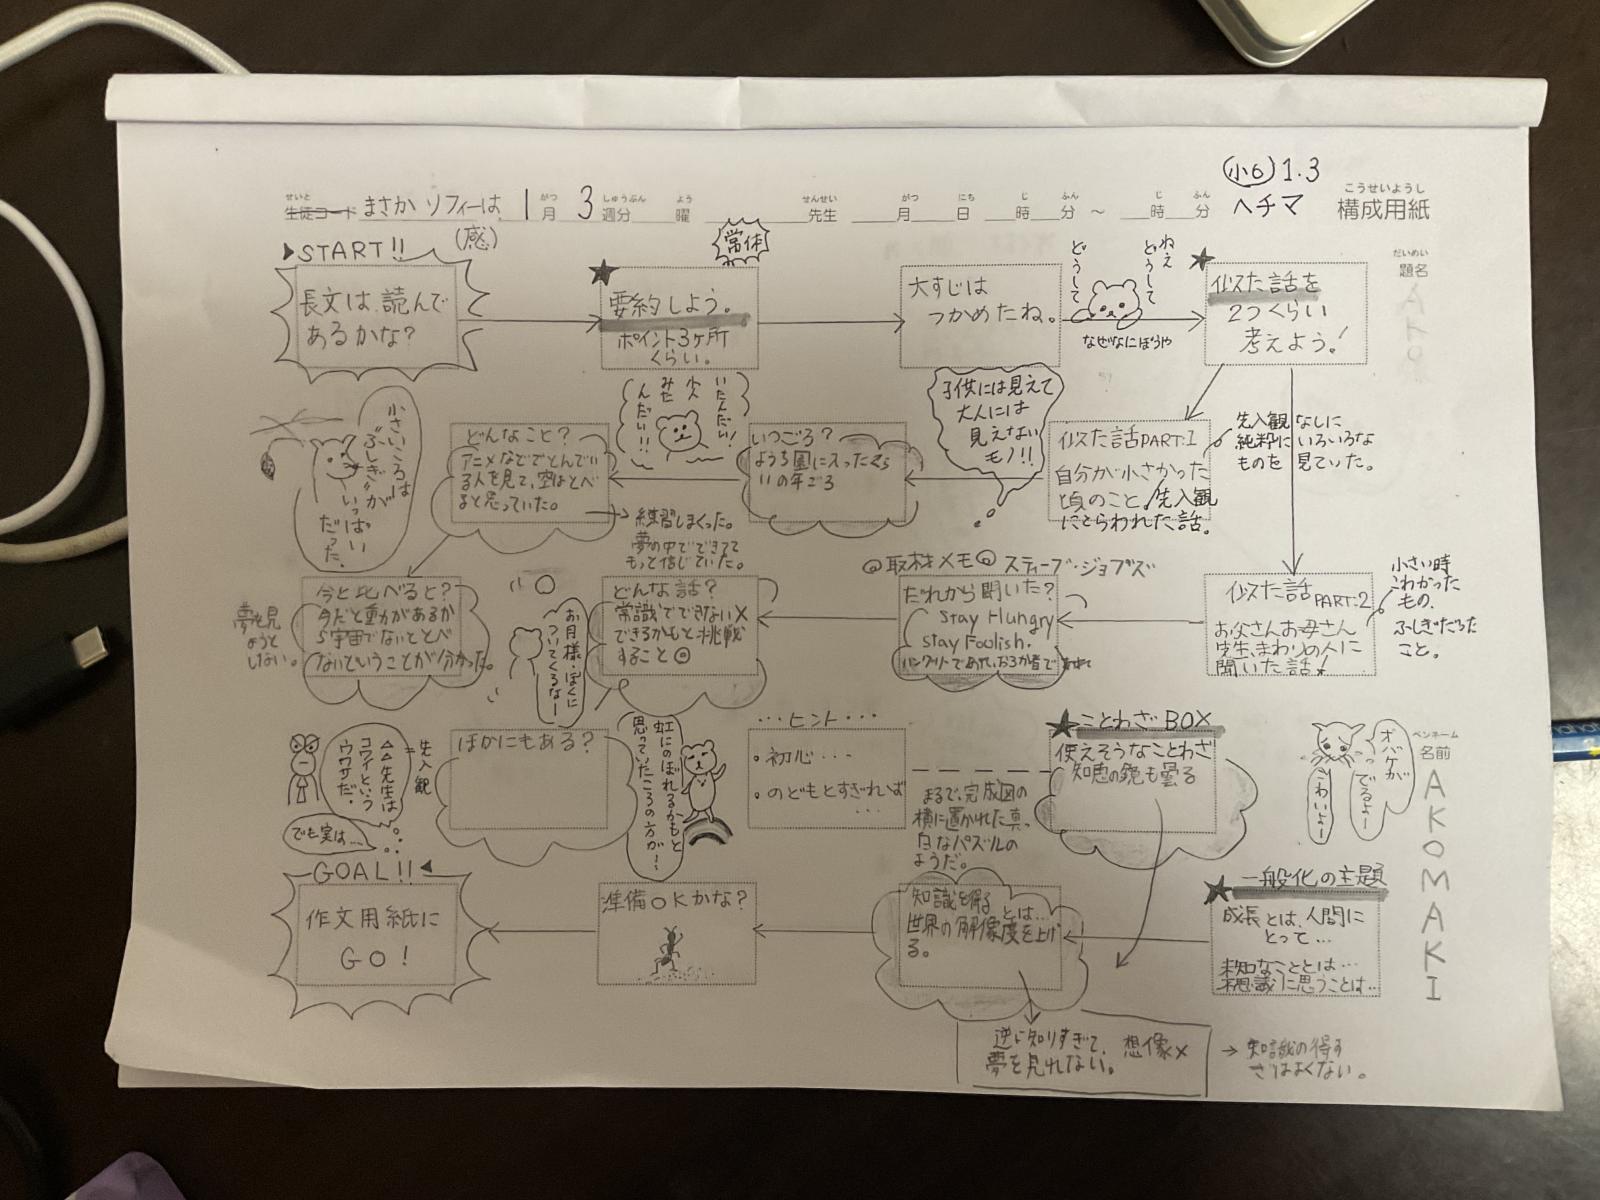 小6 1.3
ヘチマ
こうせいようし
構成用紙
せいと
生徒コード まさか ソフィーは 1 がつ 月 3 しゅうぶん 週分 よう 曜 せんせい 先生 がつ 月 にち 日 じ 時 ふん 分 ～ じ 時 ふん 分
(感)
常体
だいめい
題名
START!!
長文は、読んで
あるかな?
★
要約しよう。
ポイント3ヶ所
くらい。
大すじは
つかめたね。
ねえ
どうして
どうして
なぜなにぼうや
★
似た話を
2つくらい
考えよう!
似た話PART:1
自分が小さかった
頃のこと、先入観
にとらわれた話。
先入観なしに
純粋にいろいろな
ものを見ていた。
子供には見えて
大人には
見えない
モノ!!
いつごろ?
ようち園に入ったくら
いの年ごろ
いたんだい!
小人
みた
んだい!!
どんなこと?
アニメなどでとんでい
る人を見て、空はとべ
ると思っていた。
→練習しまくった。
夢の中でできてて
もっと信じていた。
小さいころは
"ふしぎ"が
いっぱい
だった。
今と比べると?
今だと重力があるか
ら宇宙でないととべ
ないということが分かった。
夢を見
ようと
しない。
似た話PART:2
お父さんお母さん
先生、まわりの人に
聞いた話!
小さい時
こわかった
もの、
ふしぎだった
こと。
◎取材メモ◎ スティーブ・ジョブズ
だれから聞いた?
Stay Hungry
Stay Foolish.
ハングリーであれ。おろか者であれ
どんな話?
常識でできない×
できるかもと挑戦
すること◎
お月様・ぼくに
ついてくるなー
ほかにもある?
虹にのぼれるかもと
思っていたころの方が…
…ヒント…
・初心…
・のどもとすぎれば
…
★ことわざBOX
使えそうなことわざ
知恵の鏡も曇る
まるで、完成図の
横に置かれた真っ
白なパズルの
ようだ。
オバケが
でるよー
こわいよー
ペンネーム
名前
AKOMAKI
先入観
△△先生は
コワイという
ウワサだ。
でも実は…
★一般化の主題
成長とは、人間に
とって…
未知なこととは…
不思議に思うことは…
知識を得る
とは…
世界の解像度を上げ
る。
逆に知りすぎて、
夢を見れない。
想像×
→知識の得す
ぎはよくない。
準備OKかな?
GOAL!!
作文用紙に
GO!